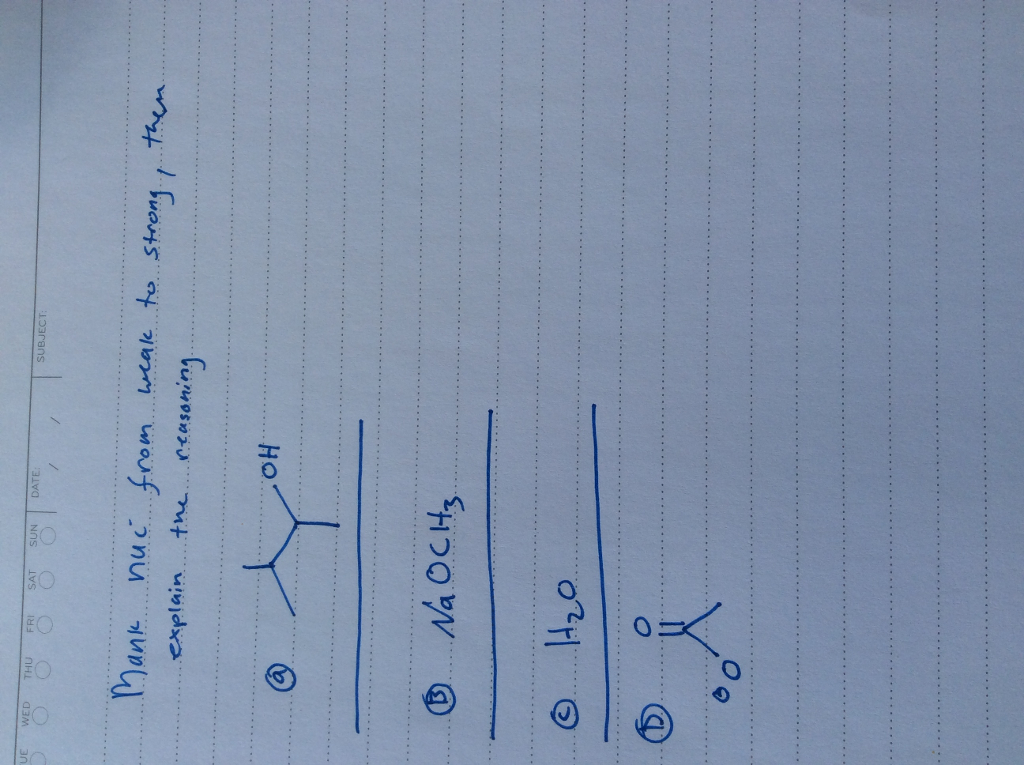 UE WED THU FRI SAT SUN DATE: / / SUBJECT:
Rank nuc⁻ from weak to strong, then
explain the reasoning
(a) OH
(B) NaOCH₃
(C) H₂O
(D) O
⊖O